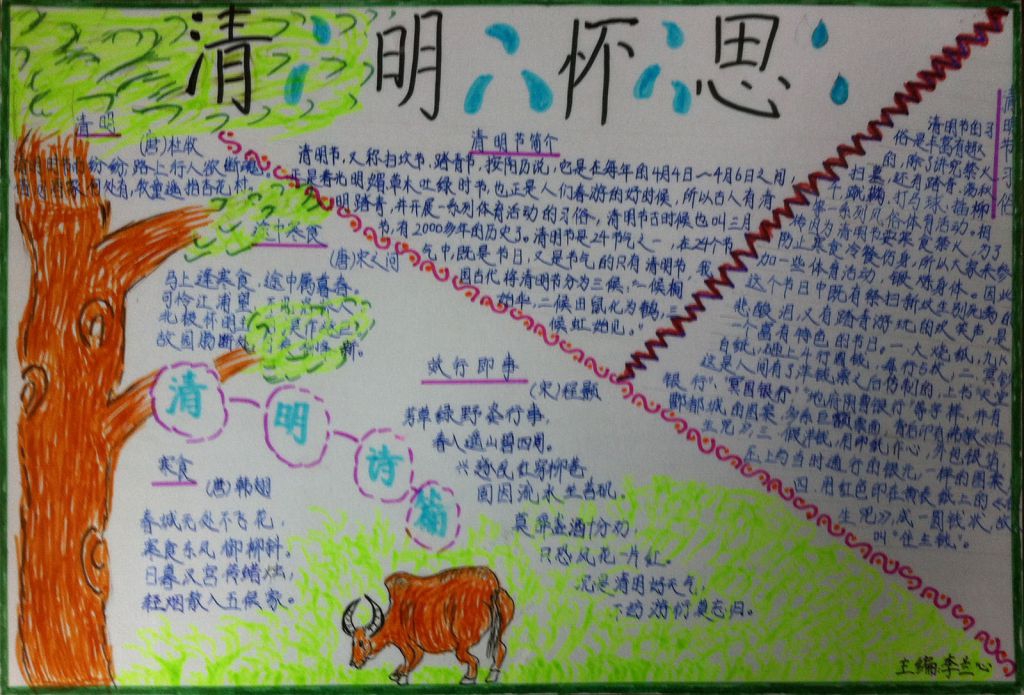 清明怀思
清明
(唐)杜牧
清明时节雨纷纷,路上行人欲断魂。
有,牧童遥指杏花村。
途中寒食
(唐)宋之问
马上逢寒食,途中属暮春。
可怜江浦望,
北极怀明主,
故园肠断处,
清明诗篇
寒食
(唐)韩翃
春城无处不飞花,
寒食东风御柳斜。
日暮汉宫传蜡烛,
轻烟散入五侯家。
清明节简介
清明节,又称扫坟节、踏青节,按阳历说,它是在每年的4月4日~4月6日之间,
正是春光明媚草木吐绿时节,也正是人们春游的好时候,所以古人有清
明踏青,并开展一系列体育活动的习俗,清明节古时候也叫三月
节,有2000多年的历史了。清明节是24节气之一,在24个节
气中,既是节日,又是节气的只有清明节。我
国古代将清明节分为三候,"一候桐
始华,二候田鼠化为鹌,三
候虹始见。"
(宋)程颢
芳草绿野恣行事,
春入遥山碧四周。
兴逐乱红穿柳巷,
固因流水坐苔矶。
莫辞盏酒十分劝,
只恐风花一片红。
况是清明好天气,
不妨游衍莫忘归。
清明节习俗
清明节的习
俗是丰富有趣
的,除了讲究禁火
扫墓,还有踏青、荡秋
千、蹴鞠、打马球、插柳
等一系列风俗体育活动。相
传因为清明节要寒食禁火,为了
防止寒食冷餐伤身,所以大家来参
加一些体育活动,锻炼身体。因此
这个节日中既有祭扫新坟生别死离的
悲酸泪,又有踏青游玩的欢笑声,是
一个富有特色的节日。一、大烧纸,九K
白纸,砸上4行圆钱,每行5枚;二、冥
这是人间有了洋钱票之后仿制的,上书"天堂
银行"、"冥国银行"、"地府阴曹银行"等字样,并有
酆都城的图案,多系巨额票面,背后印有佛教《往
生咒》;三、假洋钱,用硬纸作心,外包银箔,
压上与当时通行的银元一样的图案;
四、用红色印在黄表纸上的《往
生咒》,成一圆钱状,故
叫"往生钱"。
主编:李兰心